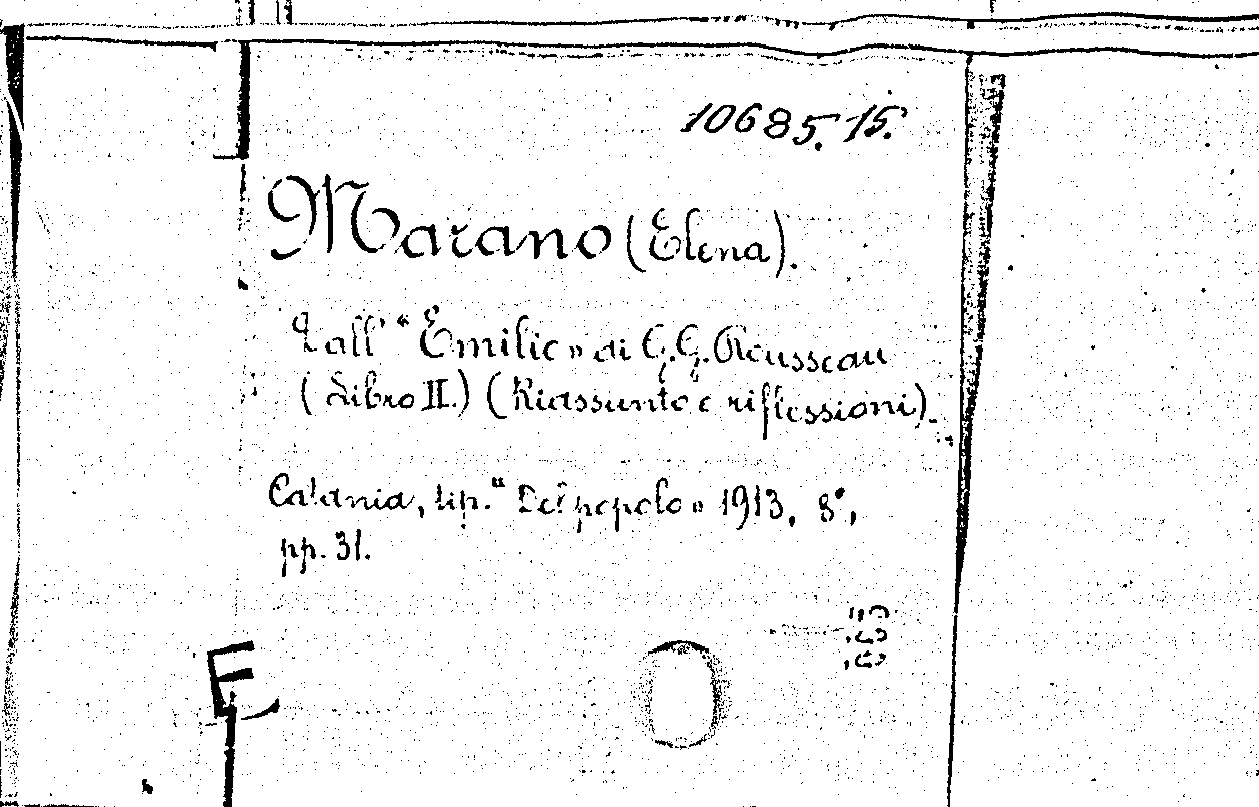 10685.15.
Marano (Elena).
Dall' "Emilio" di G.G. Rousseau
(Libro II.) (Riassunto e riflessioni).
Catania, tip. "Del popolo" 1913, 8°,
pp. 31.